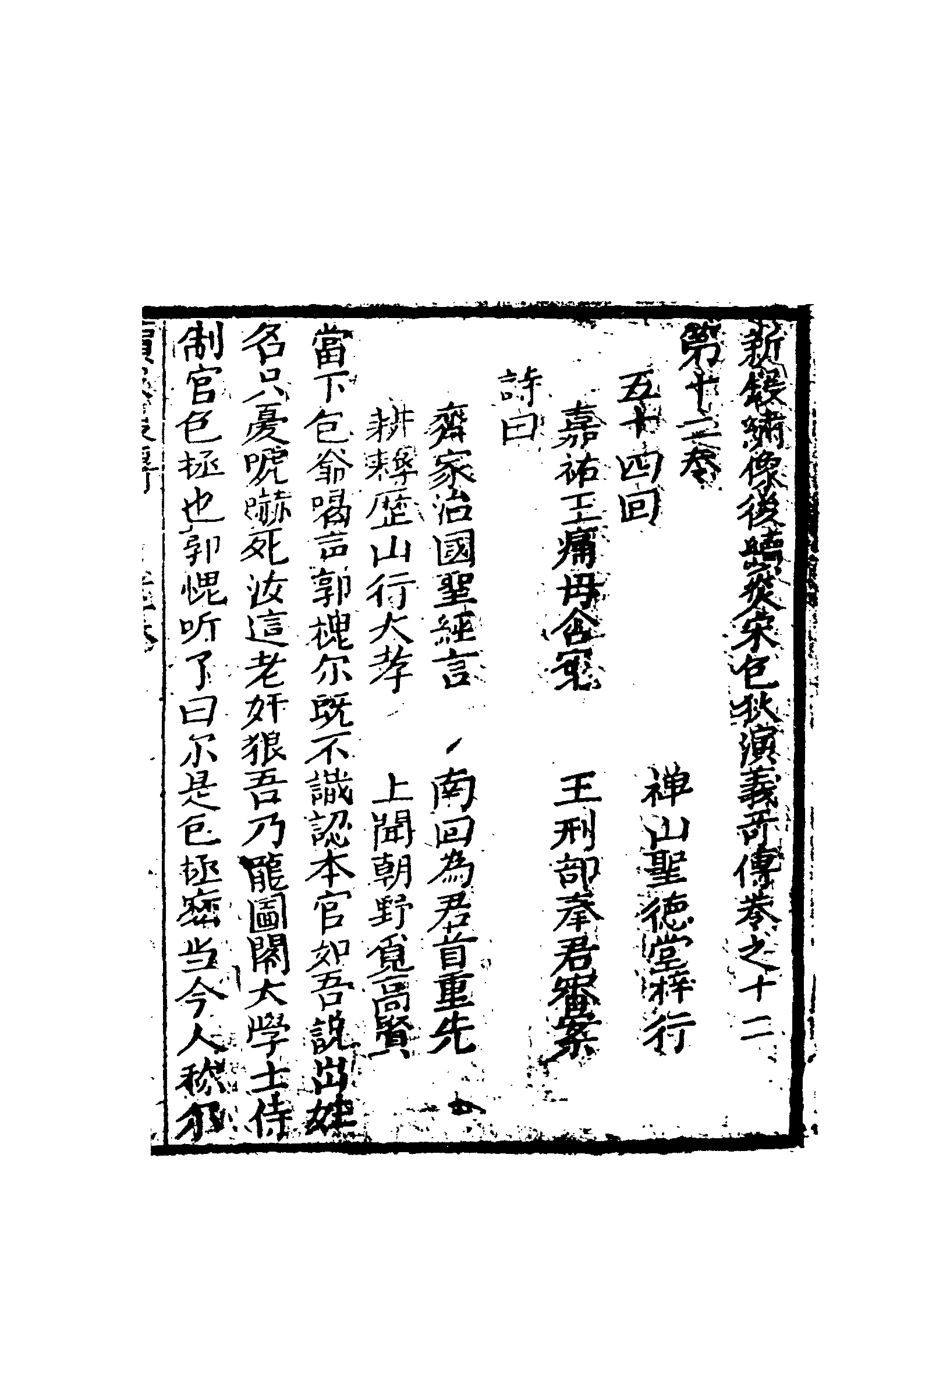 新鋟繡像後續大宋包狄演義奇傳卷之十二
第十二卷
禅山聖德堂梓行
五十四回
嘉祐王痛母含冤 王刑部奉君審案
詩曰
齊家治國聖經言 南回為君首重先
耕耨歷山行大孝 上聞朝野覓高賢
當下包爺喝声郭槐尔既不識認本官如吾說出姓
名只憂唬嚇死汝這老奸狼吾乃龍圖閣大学士侍
制官包拯也郭愧听了曰尔是包拯広当今人称尔